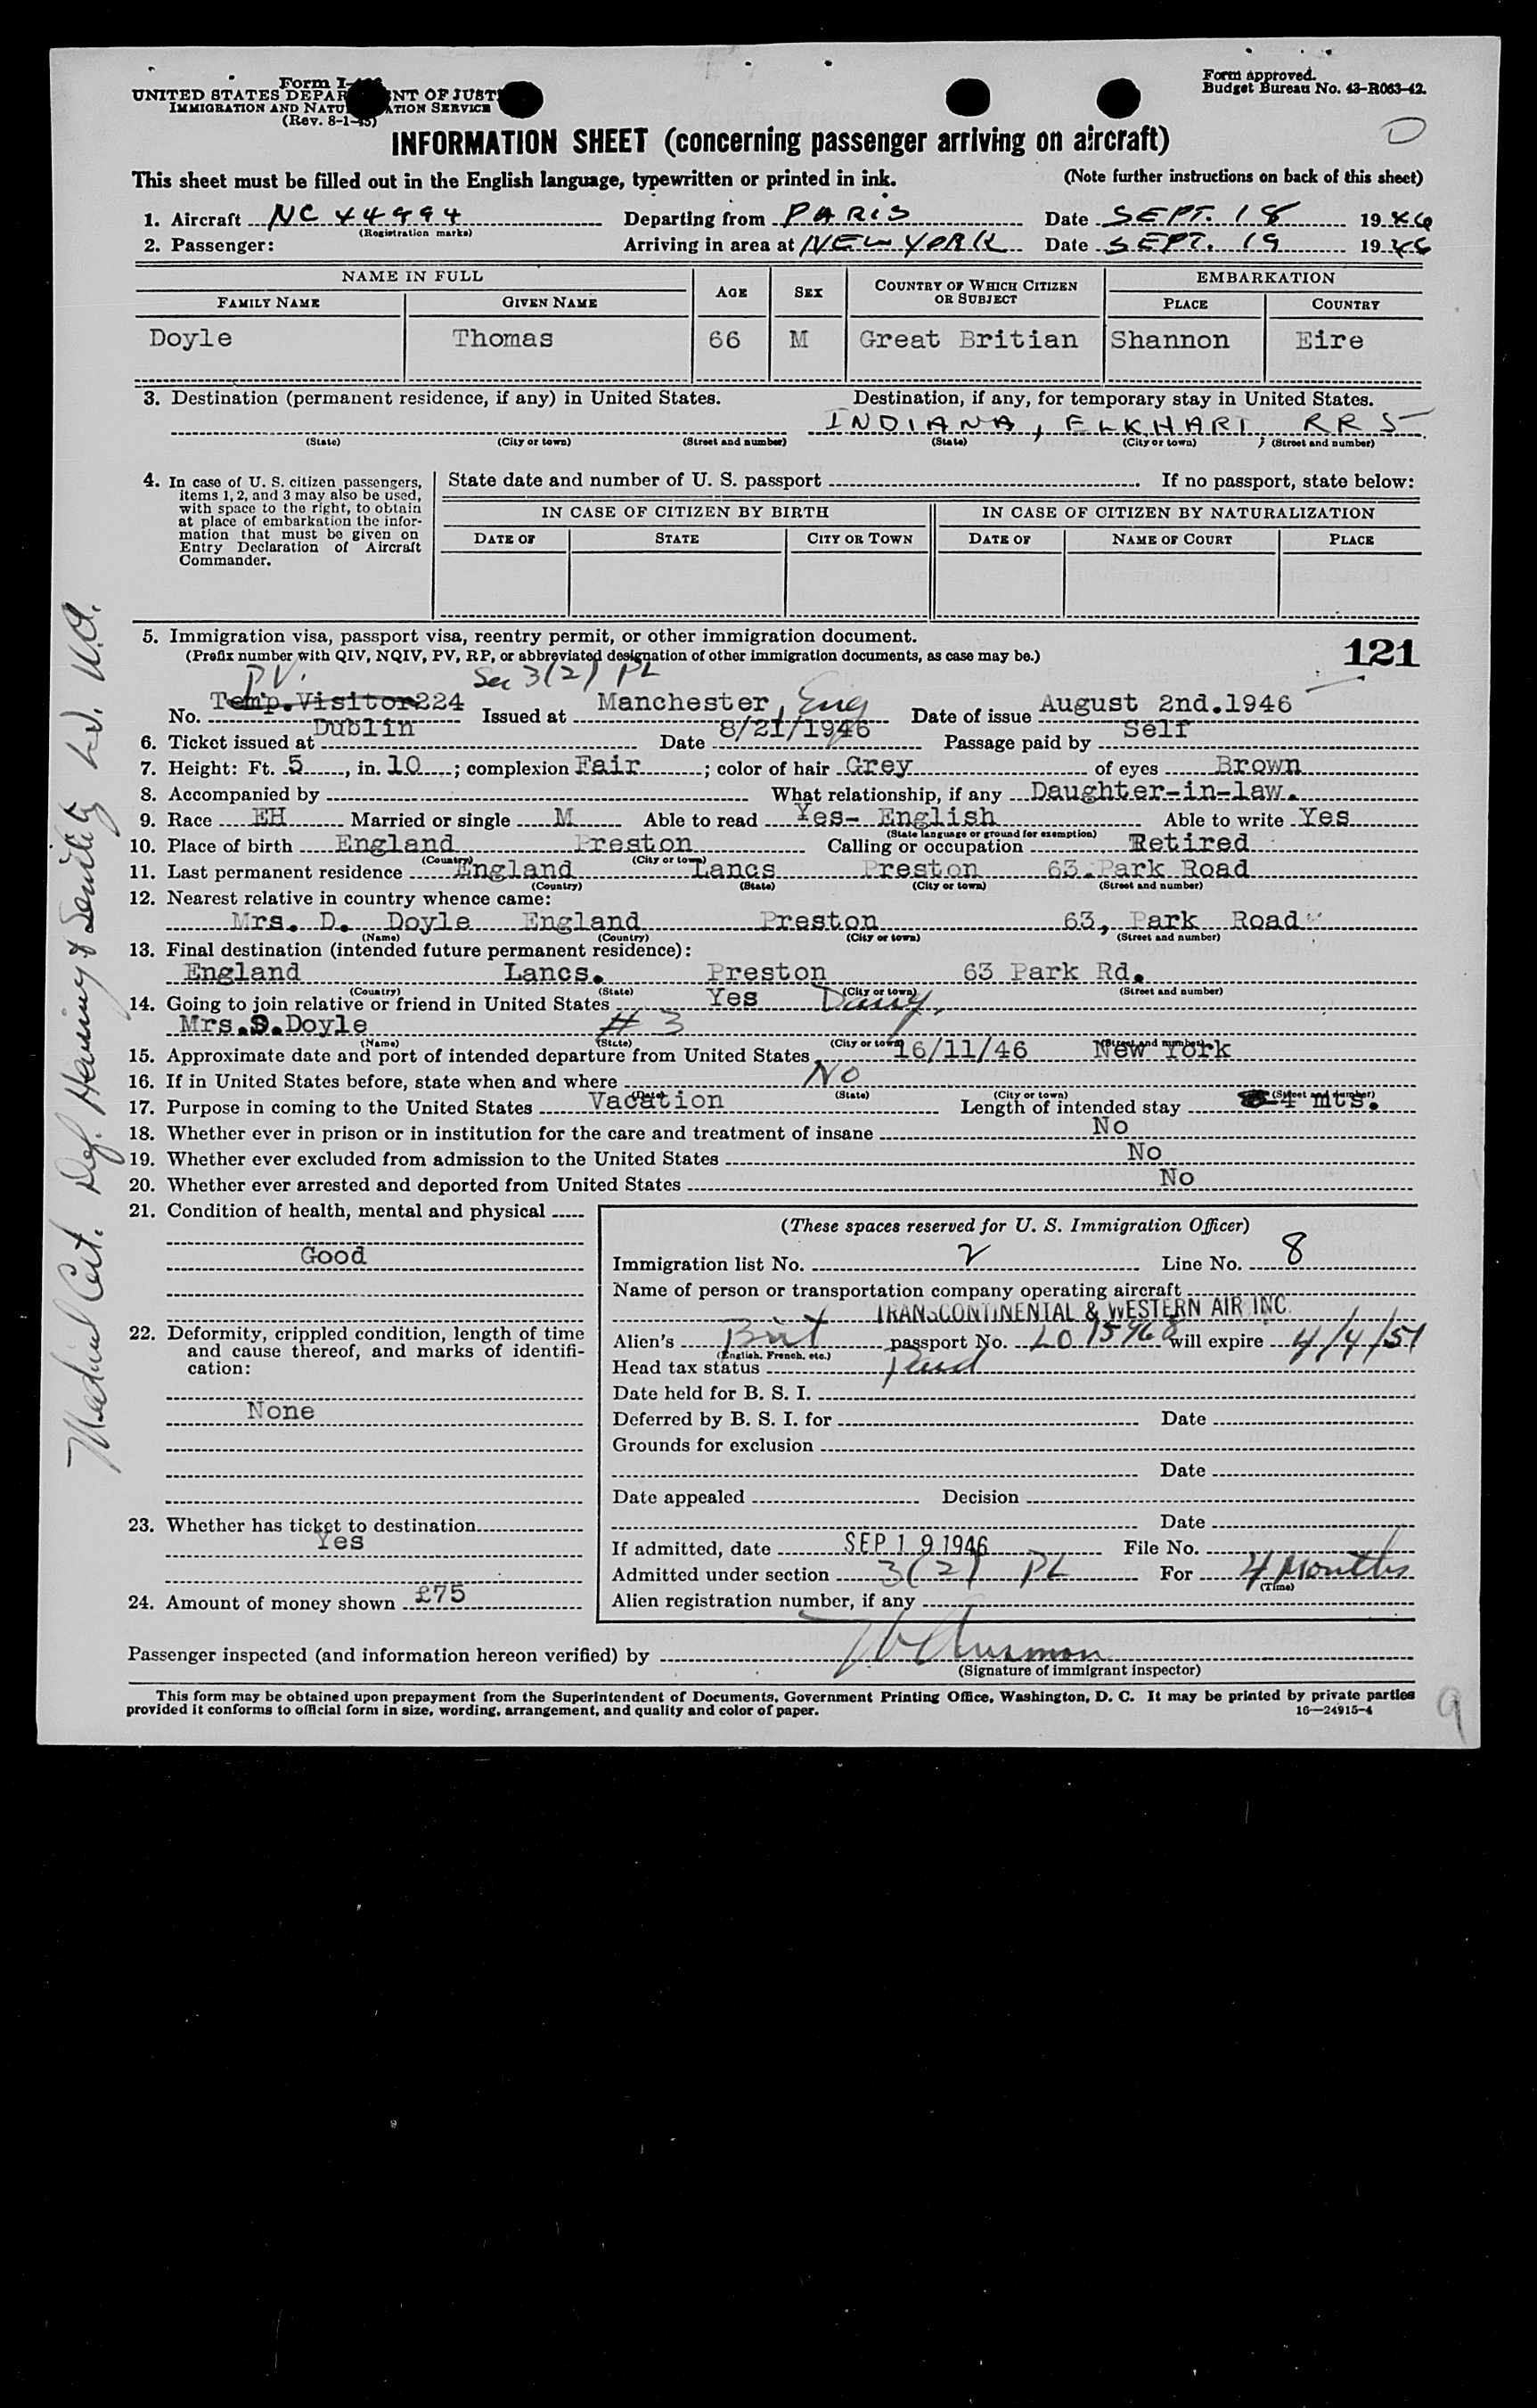 Form I-
UNITED STATES DEPAR NT OF JUST
IMMIGRATION AND NATU ATION SERVICE
(Rev. 8-1-45)
Form approved.
Budget Bureau No. 43-R063-42.
INFORMATION SHEET (concerning passenger arriving on aircraft)
This sheet must be filled out in the English language, typewritten or printed in ink. (Note further instructions on back of this sheet)
1. Aircraft NC 44994 Departing from PARIS Date SEPT. 18 1946
(Registration marks)
2. Passenger: Arriving in area at NEW YORK Date SEPT. 19 1946
NAME IN FULL AGE SEX COUNTRY OF WHICH CITIZEN OR SUBJECT EMBARKATION
FAMILY NAME GIVEN NAME PLACE COUNTRY
Doyle Thomas 66 M Great Britian Shannon Eire
3. Destination (permanent residence, if any) in United States. Destination, if any, for temporary stay in United States.
INDIANA, ELKHART, RR 5
(State) (City or town) (Street and number) (State) (City or town) (Street and number)
4. In case of U. S. citizen passengers, items 1, 2, and 3 may also be used, with space to the right, to obtain at place of embarkation the information that must be given on Entry Declaration of Aircraft Commander.
State date and number of U. S. passport If no passport, state below:
IN CASE OF CITIZEN BY BIRTH IN CASE OF CITIZEN BY NATURALIZATION
DATE OF STATE CITY OR TOWN DATE OF NAME OF COURT PLACE
5. Immigration visa, passport visa, reentry permit, or other immigration document.
(Prefix number with QIV, NQIV, PV, RP, or abbreviated designation of other immigration documents, as case may be.)
121
P.V. Sec 3(2) PL
No. Temp.Visitor224 Issued at Manchester, Eng Date of issue August 2nd.1946
6. Ticket issued at Dublin Date 8/21/1946 Passage paid by Self
7. Height: Ft. 5, in. 10; complexion Fair; color of hair Grey of eyes Brown
8. Accompanied by What relationship, if any Daughter-in-law.
9. Race EH Married or single M Able to read Yes- English Able to write Yes
(State language or ground for exemption)
10. Place of birth England Preston Calling or occupation Retired
(Country) (City or town)
11. Last permanent residence England Lancs Preston 63.Park Road
(Country) (State) (City or town) (Street and number)
12. Nearest relative in country whence came:
Mrs. D. Doyle England Preston 63, Park Road
(Name) (Country) (City or town) (Street and number)
13. Final destination (intended future permanent residence):
England Lancs. Preston 63 Park Rd.
(Country) (State) (City or town) (Street and number)
14. Going to join relative or friend in United States Yes
Mrs.S.Doyle # 3
(Name) (State) (City or town) (Street and number)
15. Approximate date and port of intended departure from United States 16/11/46 New York
16. If in United States before, state when and where No
(Date) (State) (City or town) (Street and number)
17. Purpose in coming to the United States Vacation Length of intended stay 4 mts.
18. Whether ever in prison or in institution for the care and treatment of insane No
19. Whether ever excluded from admission to the United States No
20. Whether ever arrested and deported from United States No
21. Condition of health, mental and physical
Good
22. Deformity, crippled condition, length of time and cause thereof, and marks of identification:
None
23. Whether has ticket to destination
Yes
24. Amount of money shown £75
(These spaces reserved for U. S. Immigration Officer)
Immigration list No. 2 Line No. 8
Name of person or transportation company operating aircraft
TRANSCONTINENTAL & WESTERN AIR INC.
Alien's Brit passport No. LO 15968 will expire 4/4/51
(English, French, etc.)
Head tax status Paid
Date held for B. S. I.
Deferred by B. S. I. for Date
Grounds for exclusion
Date
Date appealed Decision
Date
If admitted, date SEP 19 1946 File No.
Admitted under section 3(2) PL For 4 Months
(Time)
Alien registration number, if any
Passenger inspected (and information hereon verified) by
(Signature of immigrant inspector)
This form may be obtained upon prepayment from the Superintendent of Documents, Government Printing Office, Washington, D. C. It may be printed by private parties
provided it conforms to official form in size, wording, arrangement, and quality and color of paper. 16—24915-4
9
Medical Cert. Def. Hearing & Senility